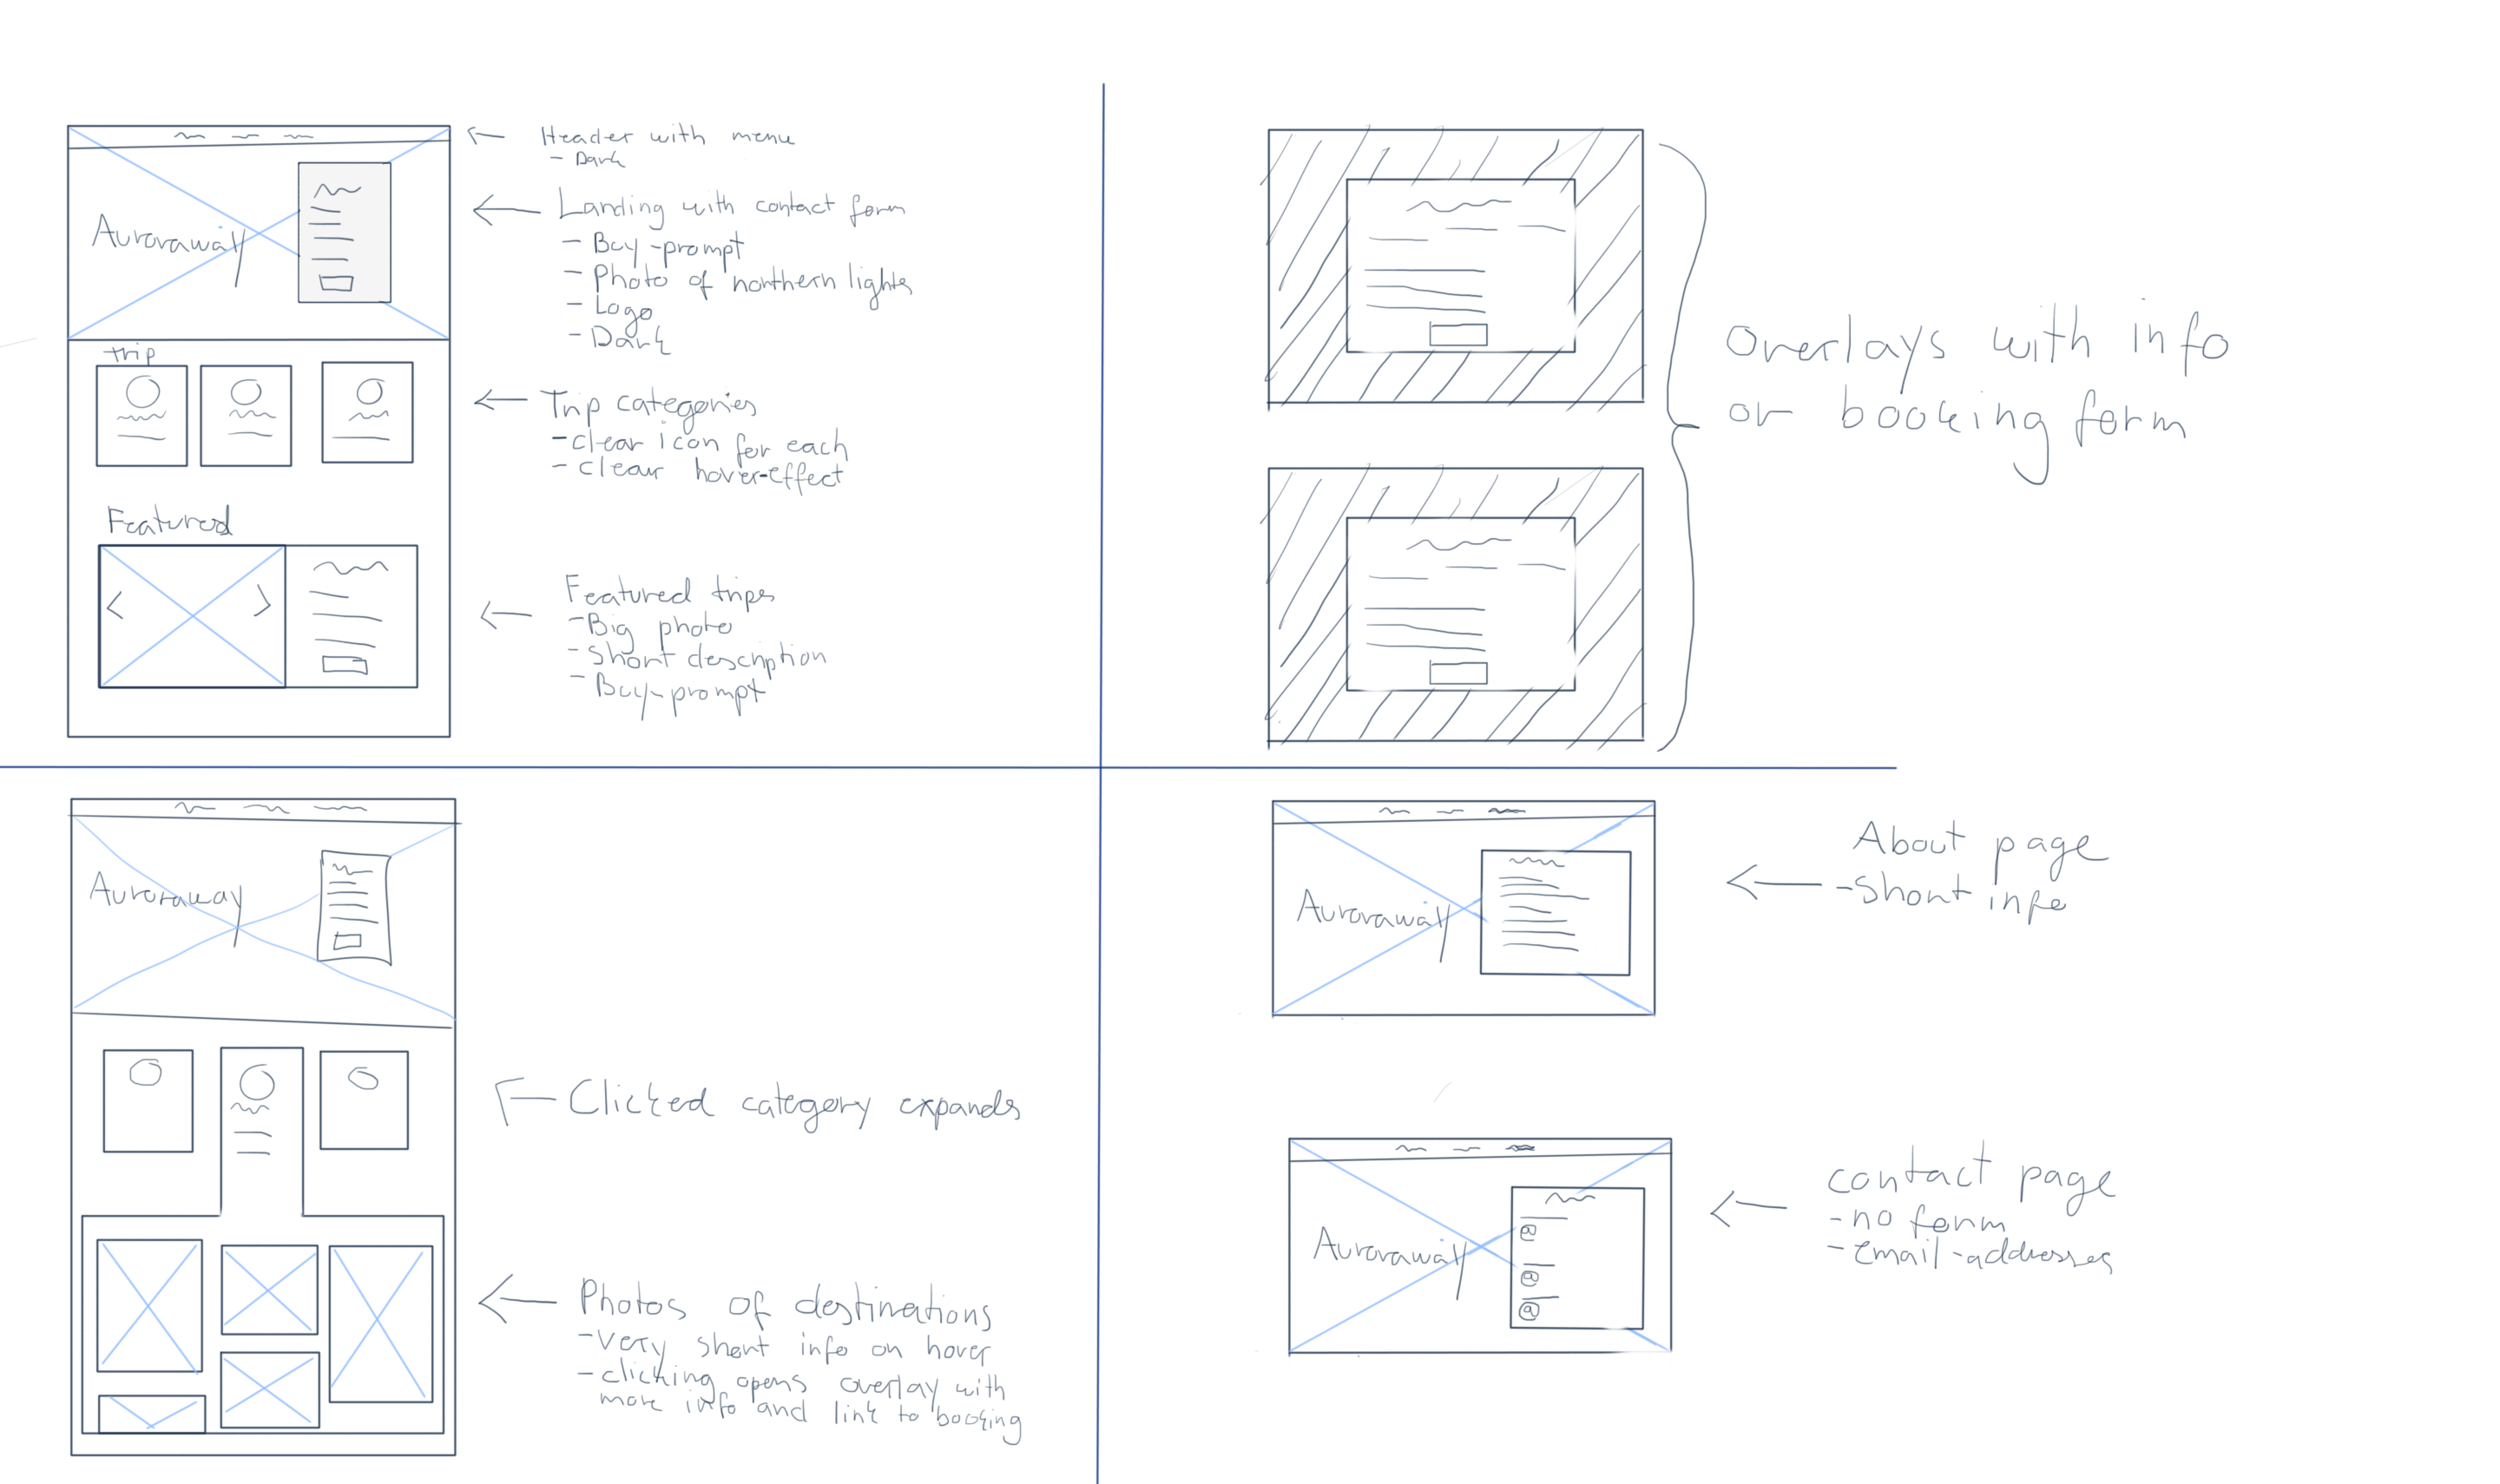 Header with menu
- Dark
Auroraway
Landing with contact form
- Buy-prompt
- Photo of northern lights
- Logo
- Dark
trip
Trip categories
- clear icon for each
- clear hover-effect
Featured
< >
Featured trips
- Big photo
- Short description
- Buy-prompt
Overlays with info
or booking form
Auroraway
Clicked category expands
Photos of destinations
- Very short info on hover
- clicking opens overlay with
more info and link to booking
Auroraway
About page
- Short info
Auroraway
@
@
@
contact page
- no form
- Email-addresses